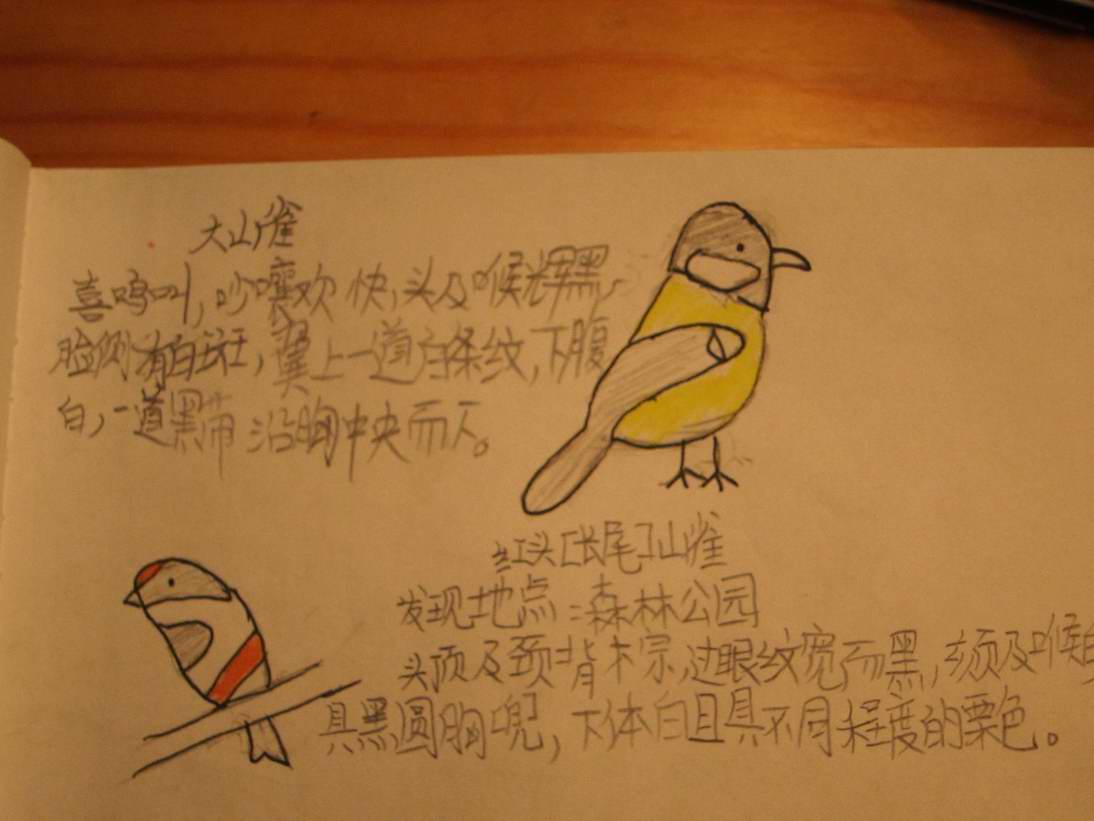 大山雀
喜鸣叫,吵嚷欢快,头及喉辉黑,
脸侧有白斑,翼上一道白条纹,下腹
白,一道黑带沿胸中央而下。
红头[长尾]山雀
发现地点:森林公园
头顶及颈背棕,过眼纹宽而黑,颏及喉白
具黑圆胸兜,下体白且具不同程度的栗色。